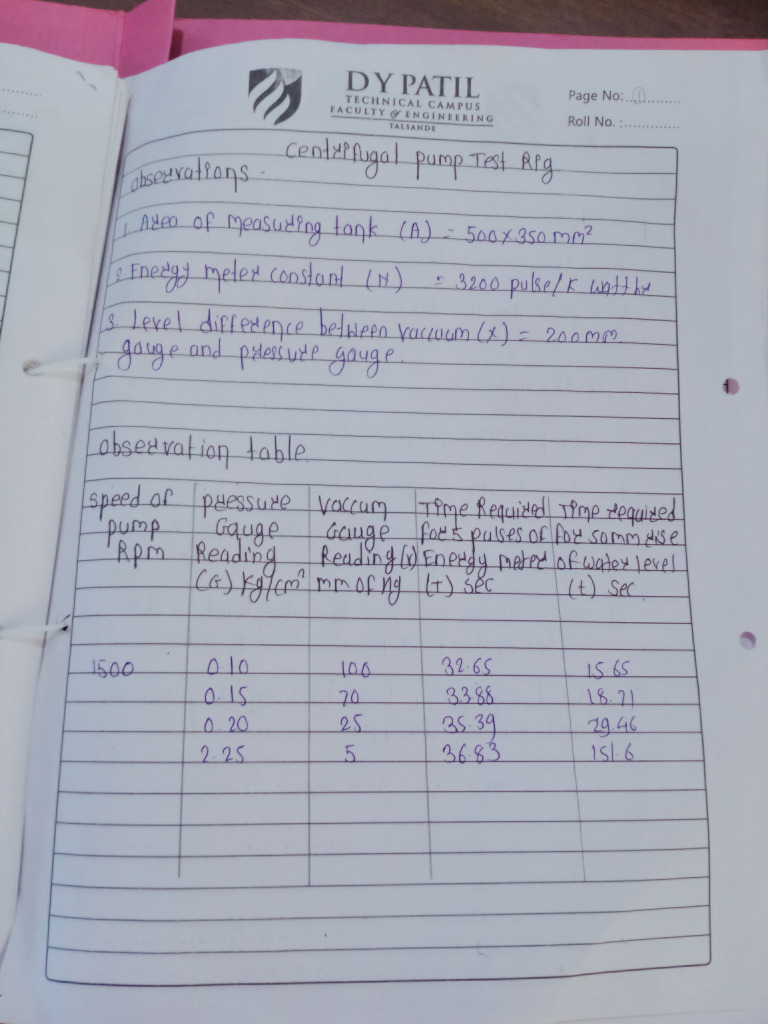 DY PATIL
TECHNICAL CAMPUS
FACULTY of ENGINEERING
TALSANDE
Page No:
Roll No. :
Centrifugal pump Test Rig
observations.
1. Area of measuring tank (A) = 500x350 mm²
2. Energy meter constant (N) = 3200 pulse/k watthr
3. Level difference between vacuum (x) = 200mm
gauge and pressure gauge.
observation table
speed of pressure Vaccum Time Required Time required
pump Gauge Gauge for 5 pulses of for 50mm rise
Rpm Reading Reading (V) Energy meter of water level
(G) Kg/cm² mm of Hg (T) sec (t) sec.
1500 0.10 100 32.65 15.65
0.15 70 33.88 18.71
0.20 25 35.39 29.46
2.25 5 36.83 151.6